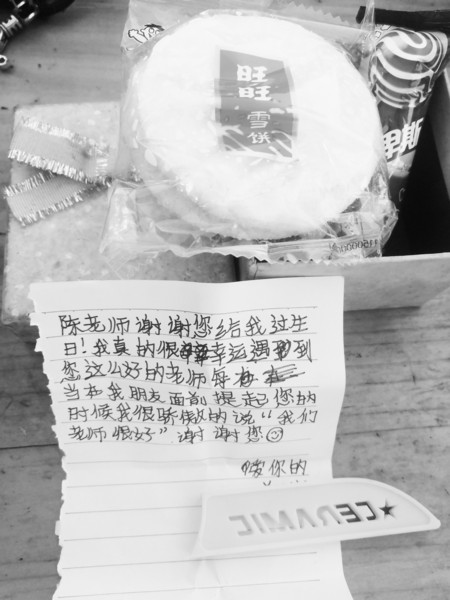 旺旺
雪饼
斯
陈老师谢谢您给我过生
日!我真的很幸运遇到
您这么好的老师每
当在我朋友面前提起您的
时候我很骄傲的说“我们
老师很好”谢谢您
你的
CERAMIC